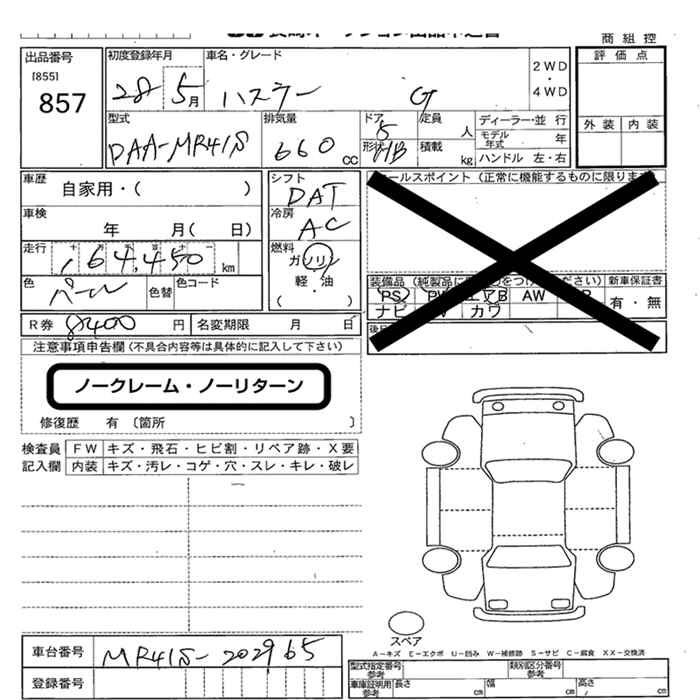 商 組 控
出品番号
[855]
857
初度登録年月
28 5月
車名・グレード
ハスラー G
2WD
・
4WD
評 価 点
外 装 内 装
型式
DAA-MR41S
排気量
660 CC
ドア
5
形状
HB
定員
人
積載
kg
ディーラー・並 行
モデル年式 年
ハンドル 左・右
車歴
自家用・( )
シフト
DAT
車検
年 月( 日)
冷房
AC
走行
164,450 km
燃料
ガソリン
軽・油
( )
色
パール
色替
色コード
R券 8400 円
名変期限 月 日
セールスポイント (正常に機能するものに限ります)
新車保証書
有・無
PS PW エアB AW
ナビ カワ
注意事項申告欄 (不具合内容等は具体的に記入して下さい)
ノークレーム・ノーリターン
修復歴 有 〔箇所 〕
検査員 FW キズ・飛石・ヒビ割・リペア跡・X要
記入欄 内装 キズ・汚レ・コゲ・穴・スレ・キレ・破レ
スペア
A－キズ E－エクボ U－凹み W－補修跡 S－サビ C－腐食 XX－交換済
車台番号 MR41S-202965
登録番号
型式指定番号 類別区分番号
車庫証明用参考 長さ cm 幅 cm 高さ cm